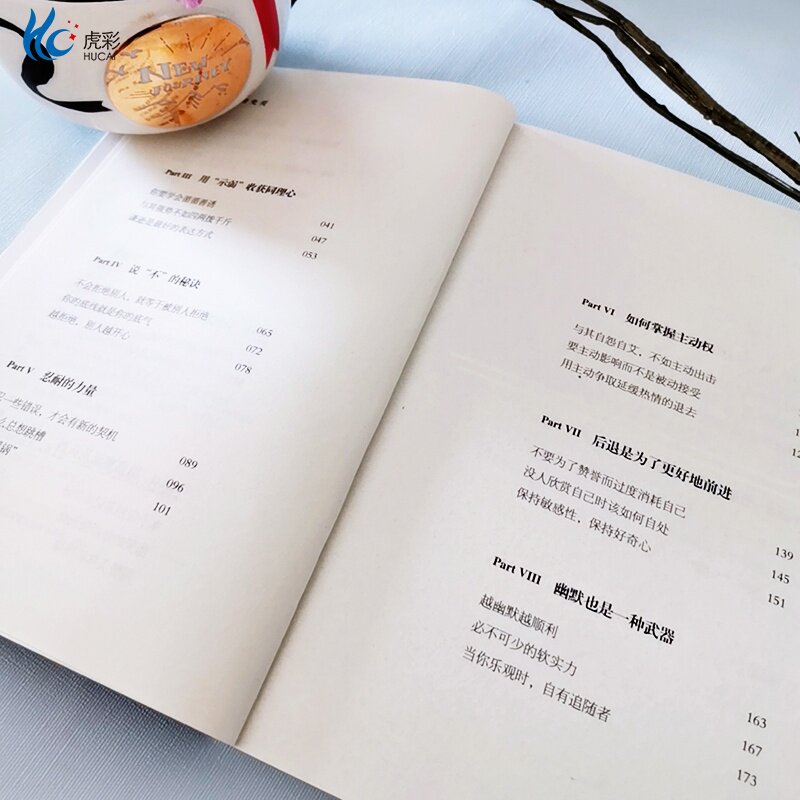 虎彩
HUCAI
NEW
JOURNEY
Part III 用“示弱”收获同理心
你要学会循循善诱
041
与其强势不如四两拨千斤
047
谦逊是最好的表达方式
053
Part IV 说“不”的秘诀
不会拒绝别人，就等于被别人拒绝
065
你的底线就是你的底气
072
越拒绝，别人越开心
078
Part V 忍耐的力量
一些错误，才会有新的契机
089
么总想跳槽
096
锅”
101
Part VI 如何掌握主动权
与其自怨自艾，不如主动出击
要主动影响而不是被动接受
用主动争取延缓热情的退去
Part VII 后退是为了更好地前进
不要为了赞誉而过度消耗自己
139
没人欣赏自己时该如何自处
145
保持敏感性，保持好奇心
151
Part VIII 幽默也是一种武器
越幽默越顺利
163
必不可少的软实力
167
当你乐观时，自有追随者
173